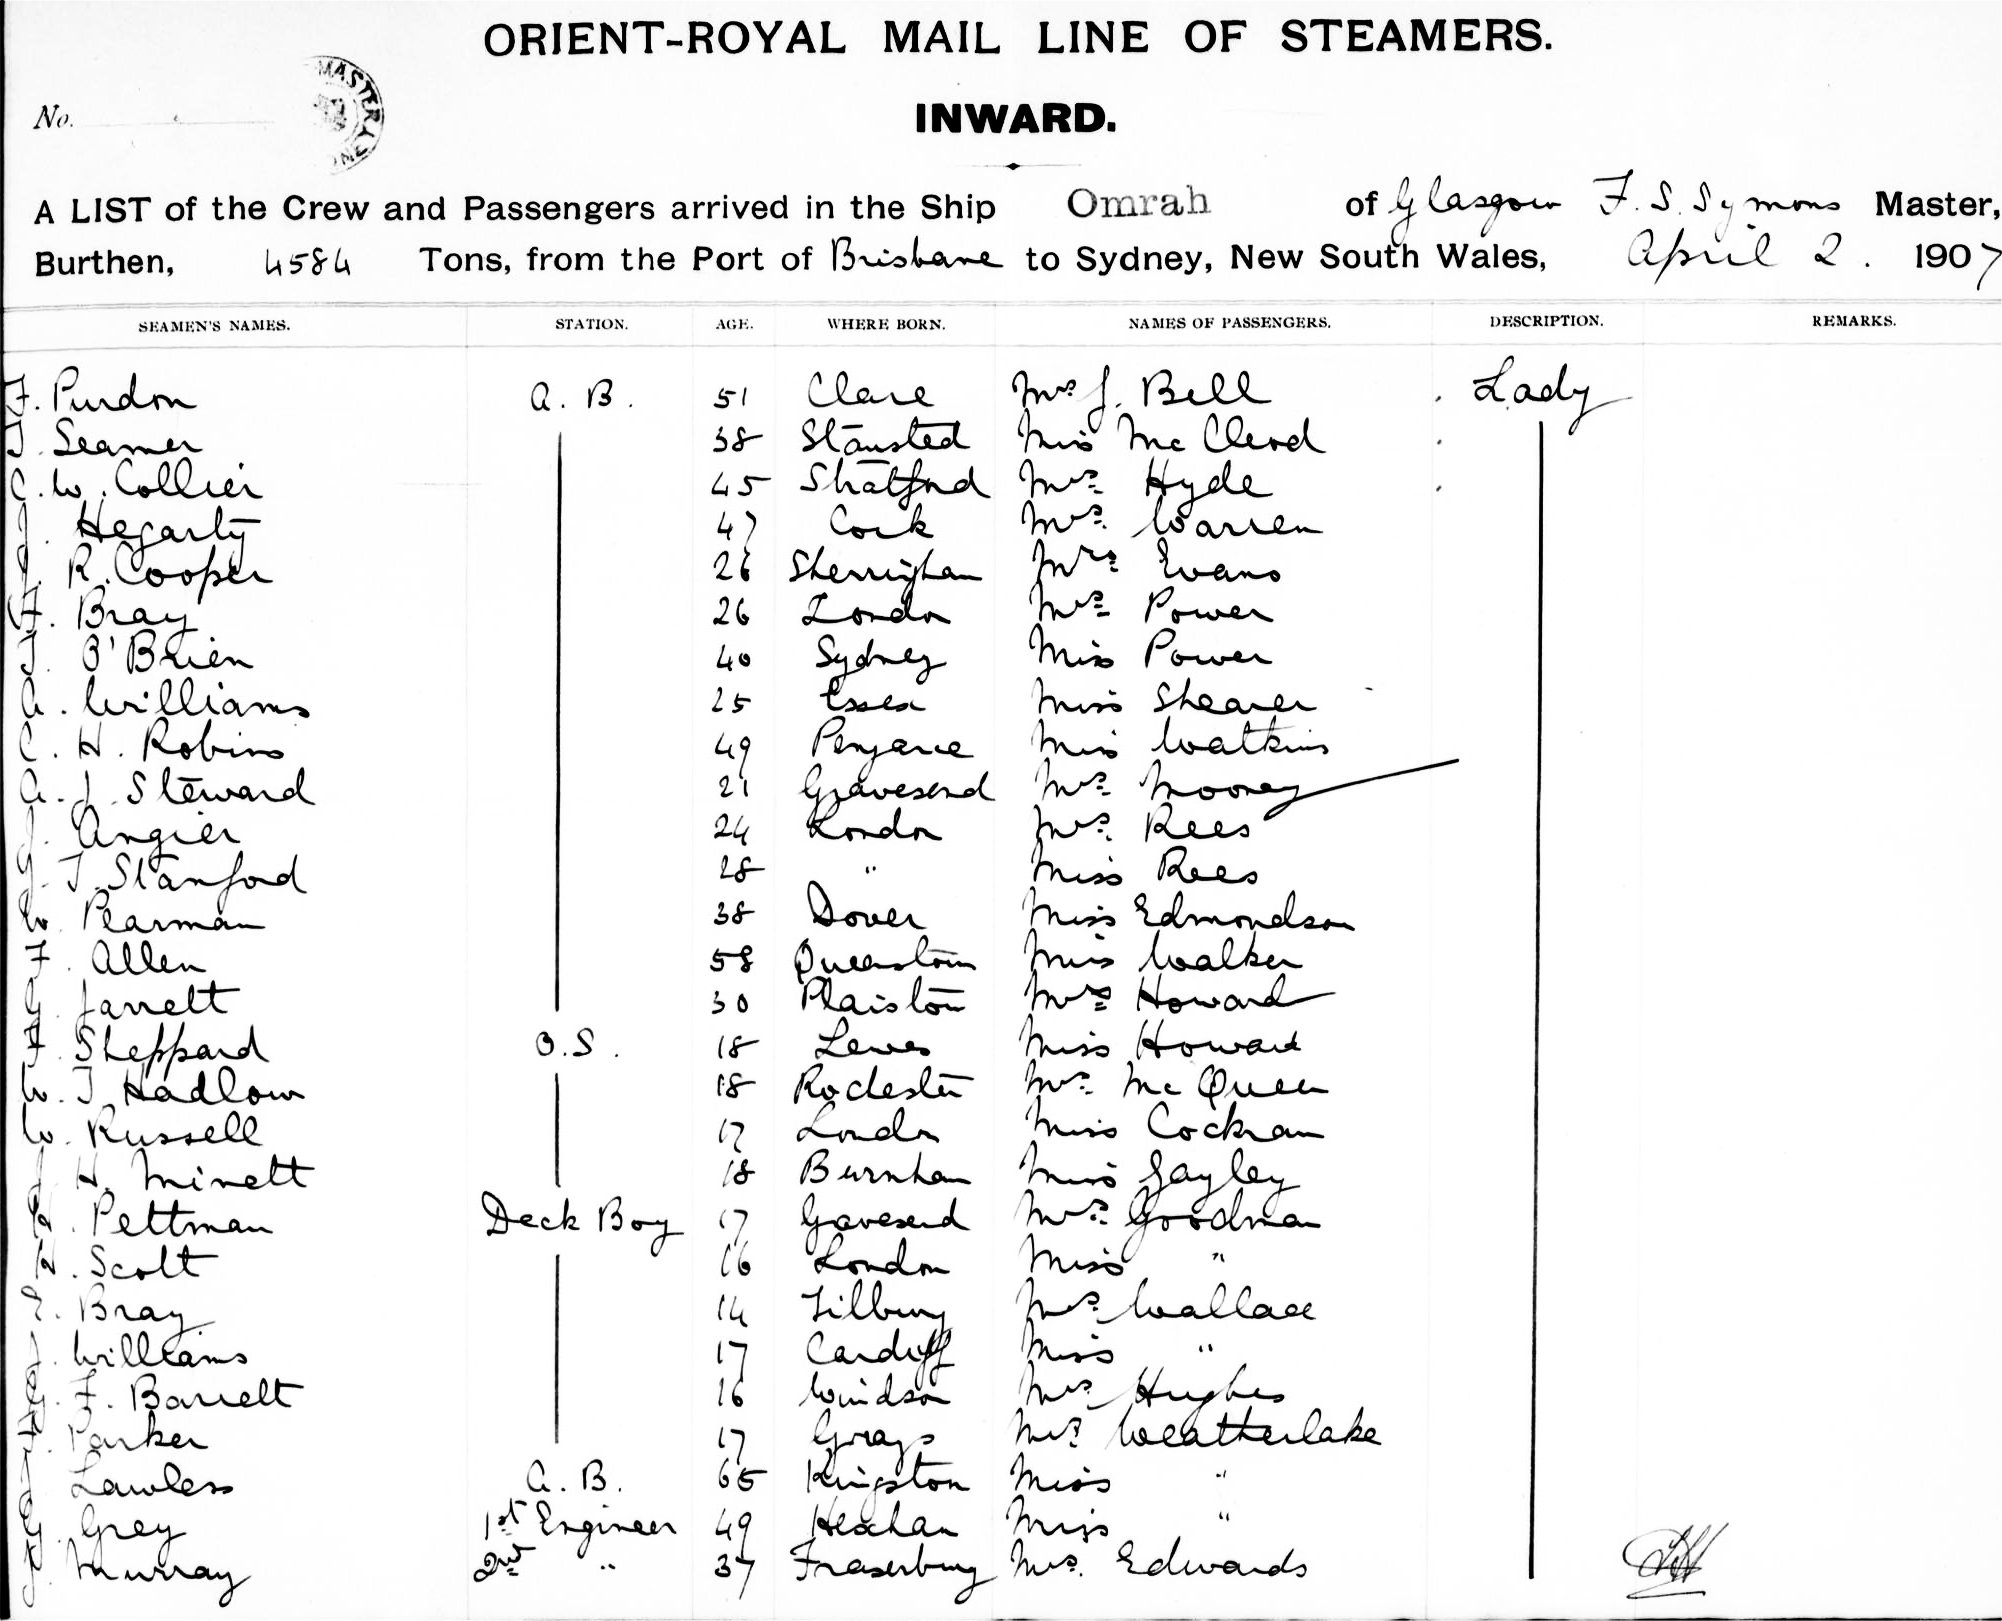 ORIENT-ROYAL MAIL LINE OF STEAMERS.
MASTER
No.
INWARD.
A LIST of the Crew and Passengers arrived in the Ship Omrah of Glasgow F. S. Symons Master,
Burthen, 4584 Tons, from the Port of Brisbane to Sydney, New South Wales, April 2. 1907
SEAMEN'S NAMES. STATION. AGE. WHERE BORN. NAMES OF PASSENGERS. DESCRIPTION. REMARKS.
F. Purdon A. B. 51 Clare Mrs J. Bell Lady
T. Seamer 38 Stansted Miss McCleod
C. W. Collier 45 Stratford Mrs. Hyde
J. Hegarty 47 Cork Mrs. Warren
J. R. Cooper 26 Sherringham Mrs Evans
H. Bray 26 London Mrs Power
T. O'Brien 40 Sydney Miss Power
A. Williams 25 Essex Miss Shearer
C. H. Robins 49 Penzance Miss Watkins
A. J. Steward 21 Gravesend Mrs. Mooney
J. Angier 24 London Mrs. Rees
T. Stanford 28 " Miss Rees
W. Pearman 38 Dover Miss Edmondson
F. Allen 58 Queenstown Miss Walker
Jarrett 30 Plaistow Mrs Howard
Sheppard O.S. 18 Lewes Miss Howard
W. T. Hadlow 18 Rochester Mrs. McQueen
W. Russell 17 London Miss Cockram
J. H. Minett 18 Burnham Miss Gayley
Pettman Deck Boy 17 Gravesend Mrs. Goodman
Scott 16 London Miss "
E. Bray 14 Tilbury Mrs. Wallace
J. Williams 17 Cardiff Miss "
F. Barrett 16 Windsor Mrs Hughes
Parker 17 Grays Mrs. Weatherlake
Lawless A. B. 65 Kingston Miss "
Grey 1st Engineer 49 Hexham Miss "
Murray 2nd " 37 Fraserburg Mrs. Edwards